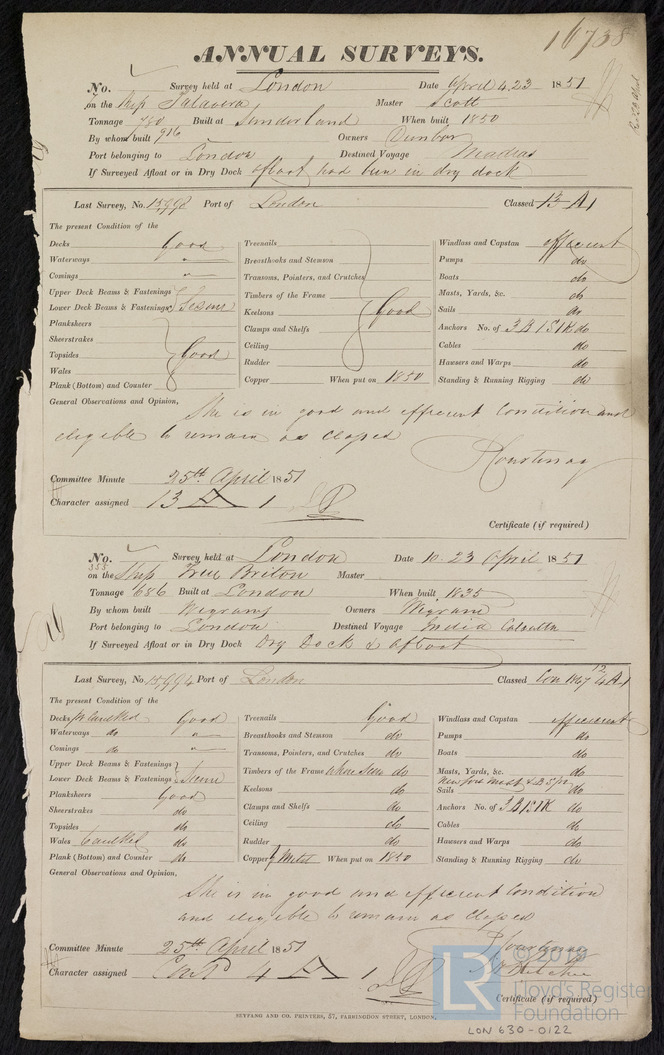 16738
ANNUAL SURVEYS.
No. Survey held at London Date April 4.23 1851
on the Ship Talavera Master Scott
Tonnage 780 Built at Sunderland When built 1850
By whom built 916 Owners Dunbar
Port belonging to London Destined Voyage Madras
If Surveyed Afloat or in Dry Dock afloat had been in dry dock
Last Survey, No. 15998 Port of London Classed 13 A1
The present Condition of the
Decks Good
Waterways "
Comings "
Upper Deck Beams & Fastenings
Lower Deck Beams & Fastenings } Seems
Planksheers
Sheerstrakes
Topsides } Good
Wales
Plank (Bottom) and Counter
Treenails
Breasthooks and Stemson
Transoms, Pointers, and Crutches
Timbers of the Frame
Keelsons } Good
Clamps and Shelfs
Ceiling
Rudder
Copper When put on 1850
Windlass and Capstan efficient
Pumps do
Boats do
Masts, Yards, &c. do
Sails do
Anchors No. of 3 B 1 S 1 K do
Cables do
Hawsers and Warps do
Standing & Running Rigging do
General Observations and Opinion,
She is in good and efficient Condition and
eligible to remain as classed
Courtenay
Committee Minute 25th April 1851
Character assigned 13 A 1
Certificate (if required)
No. 358 Survey held at London Date 10. 23 April 1851
on the Ship True Briton Master
Tonnage 686 Built at London When built 1835
By whom built Wigrams Owners Wigram
Port belonging to London Destined Voyage India Calcutta
If Surveyed Afloat or in Dry Dock Dry Dock & afloat
Last Survey, No. 15994 Port of London Classed Con 1847 4 A1
The present Condition of the
Decks pt caulked Good
Waterways do "
Comings do "
Upper Deck Beams & Fastenings
Lower Deck Beams & Fastenings } Seem
Planksheers Good
Sheerstrakes do
Topsides do
Wales Caulked do
Plank (Bottom) and Counter do
Treenails Good
Breasthooks and Stemson do
Transoms, Pointers, and Crutches do
Timbers of the Frame where seen do
Keelsons do
Clamps and Shelfs do
Ceiling do
Rudder do
Copper y Metal When put on 1850
Windlass and Capstan efficient
Pumps do
Boats do
Masts, Yards, &c. do
New fore Mast & B Spr
Sails do
Anchors No. of 3 B 1 S 1 K do
Cables do
Hawsers and Warps do
Standing & Running Rigging do
General Observations and Opinion,
She is in good and efficient Condition
and eligible to remain as classed
Courtenay
Ritchie
Committee Minute 25th April 1851
Character assigned Cont'd 4 A 1
Certificate (if required)
SEYFANG AND CO. PRINTERS, 57, FARRINGDON STREET, LONDON.
LR © 2019
Lloyd's Register
Foundation
LON 630-0122